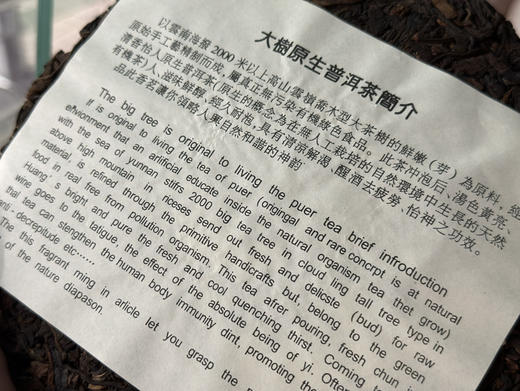 大樹原生普洱茶簡介
以雲南海拔2000米以上高山雲嶺喬木型大茶樹的鮮嫩(芽)為原料，經
原始手工藝精制而成，屬真正無污染有機綠色食品。此茶沖泡后，湯色黃亮、
清香怡人，原生普洱茶(原生的概念為在無人工栽培的自然環境中生長的天然
有機茶)人，滋味鮮醇、經久耐泡，具有清涼解渴、醒酒去疲勞、怡神之功效。
品此香茗讓你領略人與自然和諧的神韵
The big tree is original to living the puer tea brief infroduction
If is original to living the tea of puer (origingal and rare concrpt is at natural
efvionment that an airificial educate inside the natural organism tea thet grow)
with the sea of yunnan sliffs 2000 big tea tree in cloud ling tall tree type in
above high mountain in send out fresh and delicste (bud) for raw
material, is refined through the primitive handicrafts but, belong to the green
food in real free from pollution organism. This tea after pouring, fresh chun
Huang's bright and pure the fresh and cool quenching thirst. Coming
wine goes to the fatigue, the effect of the absolute being of yi. Offen
that tea can stengthen the human body immunity dint promoting the
anti- decrepitude etc......
The this fragrant ming in aricle let you grasp the
of the nature diapason.